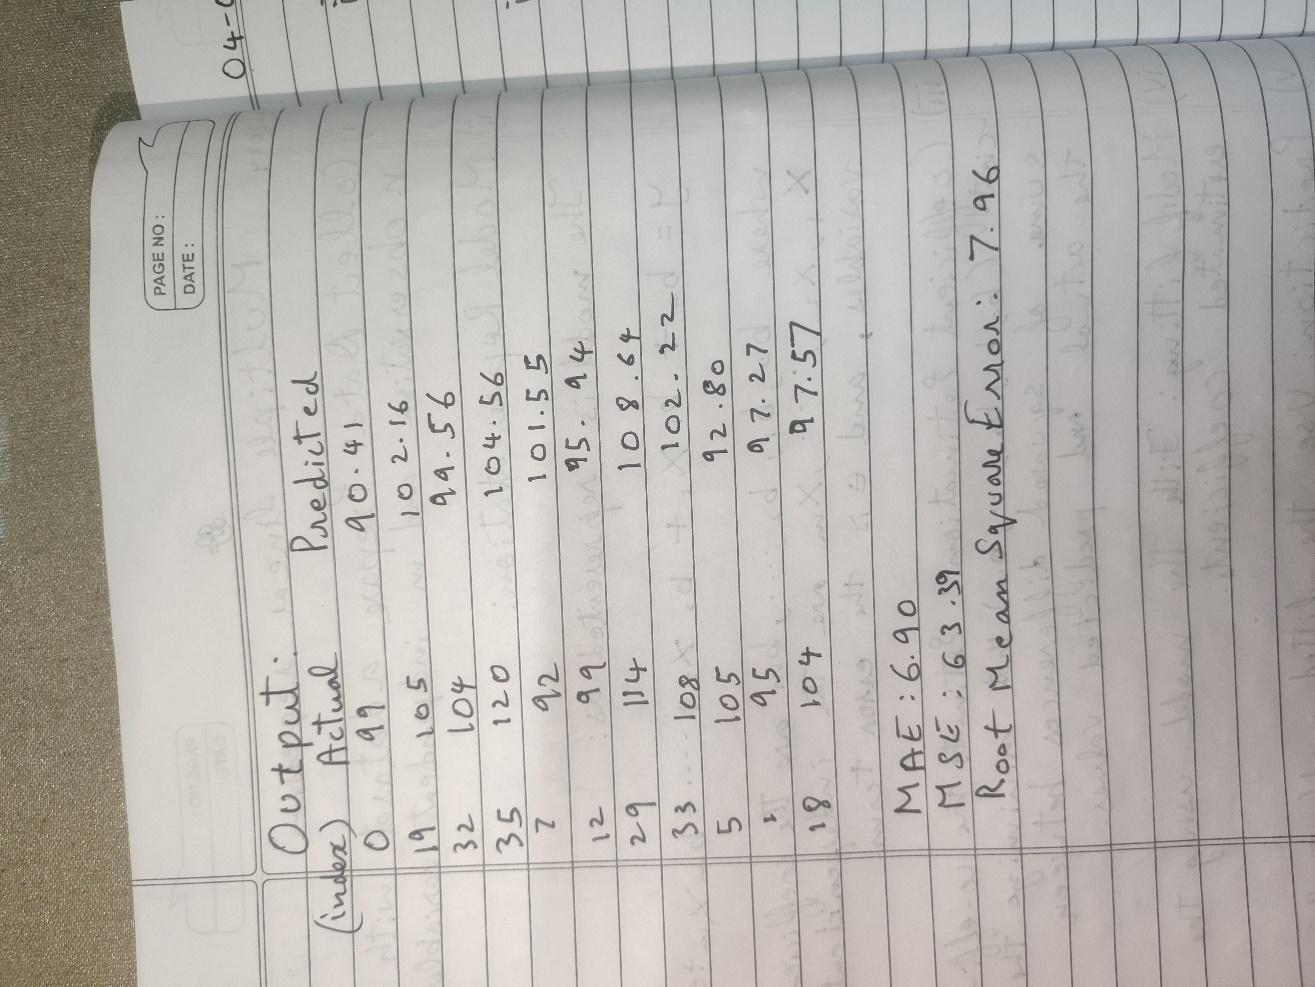 PAGE NO:
DATE:
04-0
Output:
(index) Actual Predicted
0 99 90.41
19 105 102.16
32 104 99.56
35 120 104.56
7 92 101.55
12 99 95.94
29 114 108.64
33 108 102.22
5 105 92.80
95 97.27
18 104 97.57
MAE: 6.90
MSE: 63.39
Root Mean Square Error: 7.96